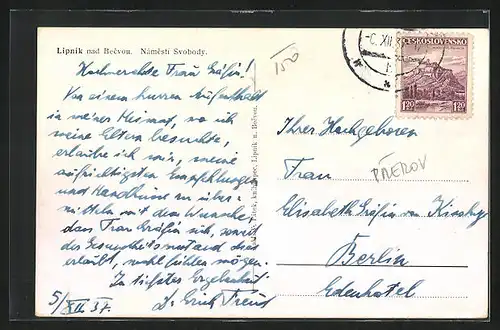 Lipník nad Bečvou. Náměstí Svobody.
Hochverehrte Frau Gräfin!
Von einem kurzen Aufenthalt
in meiner Heimat, wo ich
meine Eltern besuchte,
erlaube ich mir, meine
aufrichtigsten Empfehlungen
und Handküsse zu über-
mitteln mit dem Wunsche,
dass Frau Gräfin sich, soweit
des Gesundheitszustand dies
erlaubt, wohl fühlen mögen.
In tiefster Ergebenheit
Dr. Erich Freud
5/XII. 37.
150
-6. XII. 37
ČESKOSLOVENSKO
1.20 1.20
Lipník n. Bečvou.
Ihrer Hochgeboren
Frau
PŘEROV
Elisabeth Gräfin von Kinsky
Berlin
Edenhotel